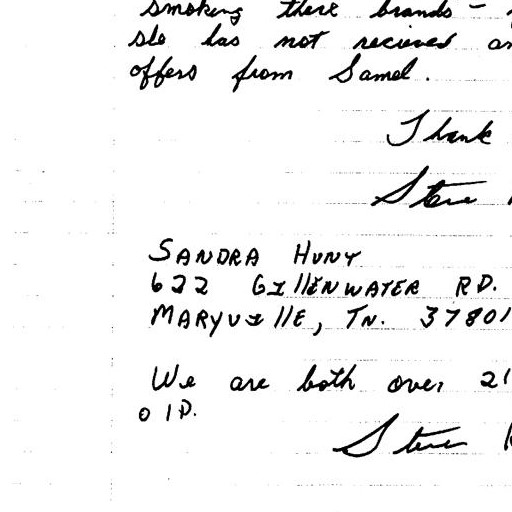 smoking there brands -
slo has not recieved an
offers from Samel.
Thank
Steve
SANDRA HUNT
622 GILLENWATER RD.
MARYVILLE, TN. 37801
We are both over 21
OLD.
Steve